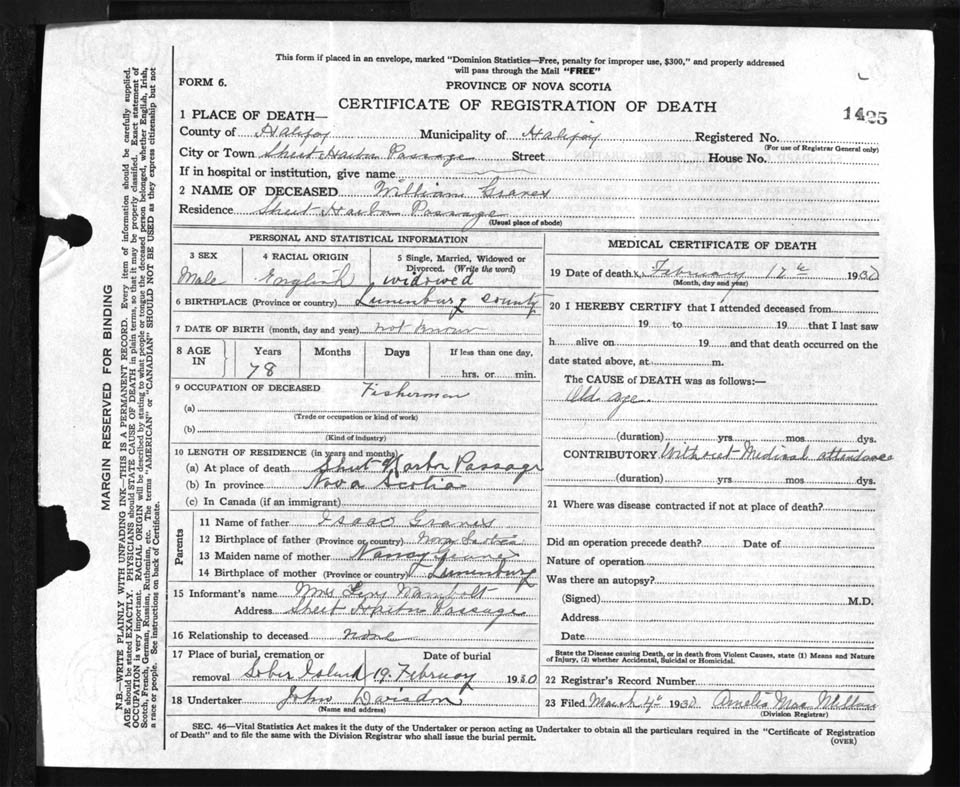 This form if placed in an envelope, marked "Dominion Statistics—Free, penalty for improper use, $300," and properly addressed
will pass through the Mail "FREE"
FORM 6.
PROVINCE OF NOVA SCOTIA
CERTIFICATE OF REGISTRATION OF DEATH
1425
1 PLACE OF DEATH—
County of Halifax Municipality of Halifax Registered No.
(For use of Registrar General only)
City or Town Sheet Harbor Passage Street House No.
If in hospital or institution, give name
2 NAME OF DECEASED William Graves
Residence Sheet Harbor Passage
(Usual place of abode)
PERSONAL AND STATISTICAL INFORMATION
3 SEX 4 RACIAL ORIGIN 5 Single, Married, Widowed or
Divorced. (Write the word)
Male English widowed
6 BIRTHPLACE (Province or country) Lunenburg County
7 DATE OF BIRTH (month, day and year) not known
8 AGE IN Years Months Days If less than one day,
78 hrs. or min.
9 OCCUPATION OF DECEASED Fisherman
(a)
(Trade or occupation or kind of work)
(b)
(Kind of industry)
10 LENGTH OF RESIDENCE (in years and months)
(a) At place of death Sheet Harbor Passage
(b) In province Nova Scotia
(c) In Canada (if an immigrant)
Parents
11 Name of father Isaac Graves
12 Birthplace of father (Province or country) Nova Scotia
13 Maiden name of mother Nancy
14 Birthplace of mother (Province or country) Lunenburg
15 Informant's name Mrs Wambolt
Address Sheet Harbor Passage
16 Relationship to deceased none
17 Place of burial, cremation or Date of burial
removal Sober Island 19 February 1930
18 Undertaker John Davison
(Name and address)
MEDICAL CERTIFICATE OF DEATH
19 Date of death February 17th 1930
(Month, day and year)
20 I HEREBY CERTIFY that I attended deceased from
19 to 19 that I last saw
h alive on 19 and that death occurred on the
date stated above, at m.
The CAUSE of DEATH was as follows:—
Old age
(duration) yrs mos dys.
CONTRIBUTORY Without Medical attendance
(duration) yrs mos dys.
21 Where was disease contracted if not at place of death?
Did an operation precede death? Date of
Nature of operation
Was there an autopsy?
(Signed) M.D.
Address
Date
State the Disease causing Death, or in death from Violent Causes, state (1) Means and Nature
of Injury, (2) whether Accidental, Suicidal or Homicidal.
22 Registrar's Record Number
23 Filed March 4th 1930
(Division Registrar)
SEC. 46—Vital Statistics Act makes it the duty of the Undertaker or person acting as Undertaker to obtain all the particulars required in the "Certificate of Registration
of Death" and to file the same with the Division Registrar who shall issue the burial permit.
(OVER)
MARGIN RESERVED FOR BINDING
N.B.—WRITE PLAINLY WITH UNFADING INK—THIS IS A PERMANENT RECORD. Every item of information should be carefully supplied.
AGE should be stated EXACTLY. PHYSICIANS should STATE CAUSE OF DEATH in plain terms, so that it may be properly classified. Exact statement of
OCCUPATION is very important. RACIAL ORIGIN will be described by stating to what people or tongue the deceased person belonged, whether English, Irish,
Scotch, French, German, Russian, Ruthenian, etc. The terms "AMERICAN" or "CANADIAN" SHOULD NOT BE USED as they express citizenship but not
a race or people. See instructions on back of Certificate.